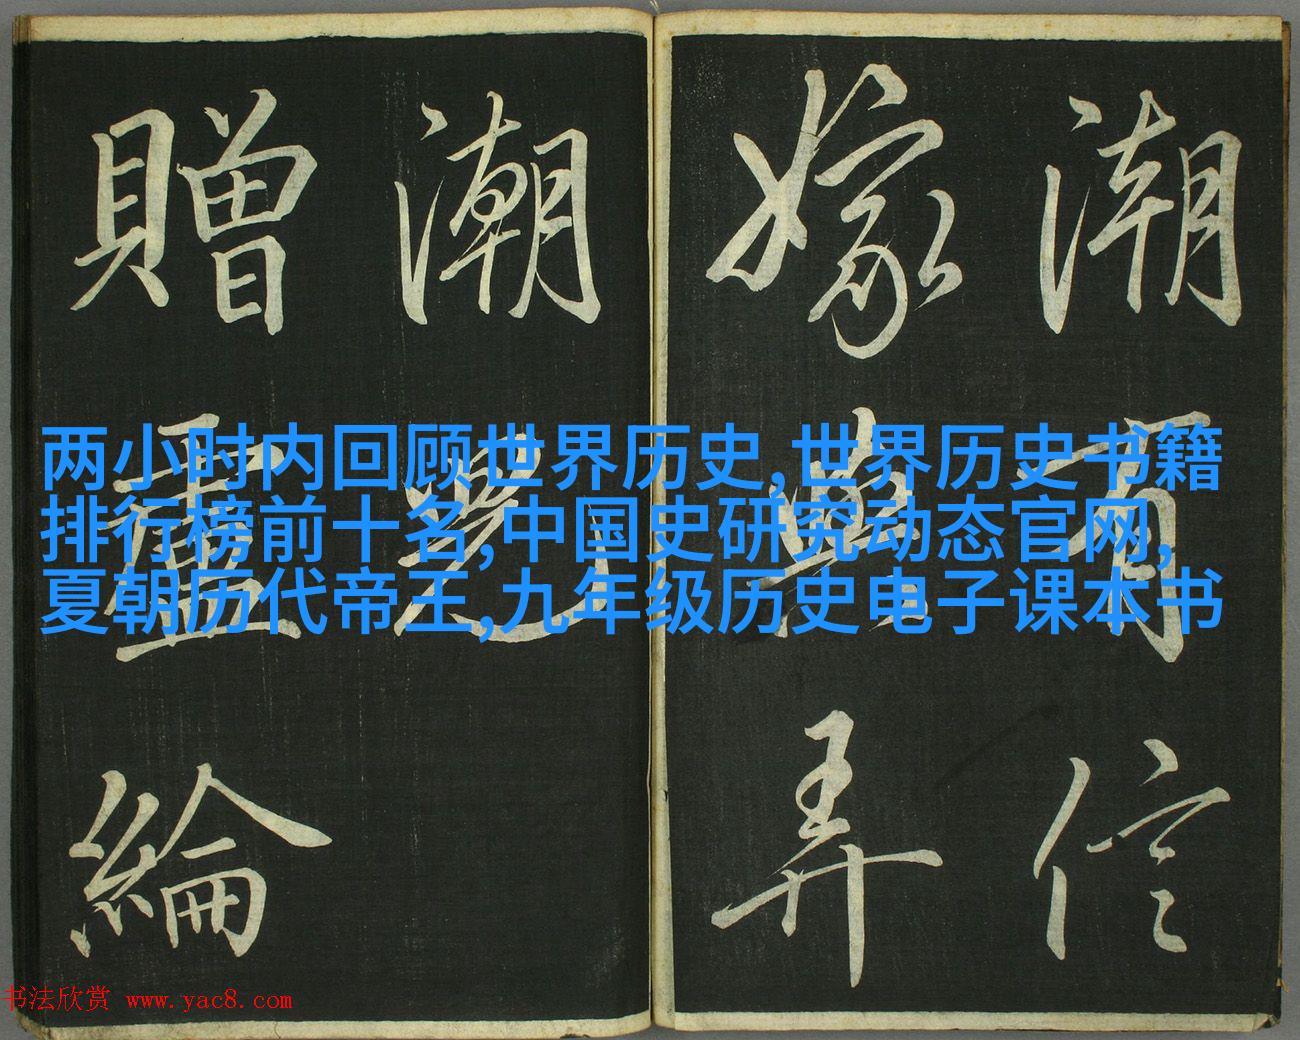 潮有信
嫁與弄
潮兒
贈盧綸
两小时内回顾世界历史,世界历史书籍
排行榜前十名,中国史研究动态官网,
夏朝历代帝王,九年级历史电子课本书
书法欣赏 www.yac8.com